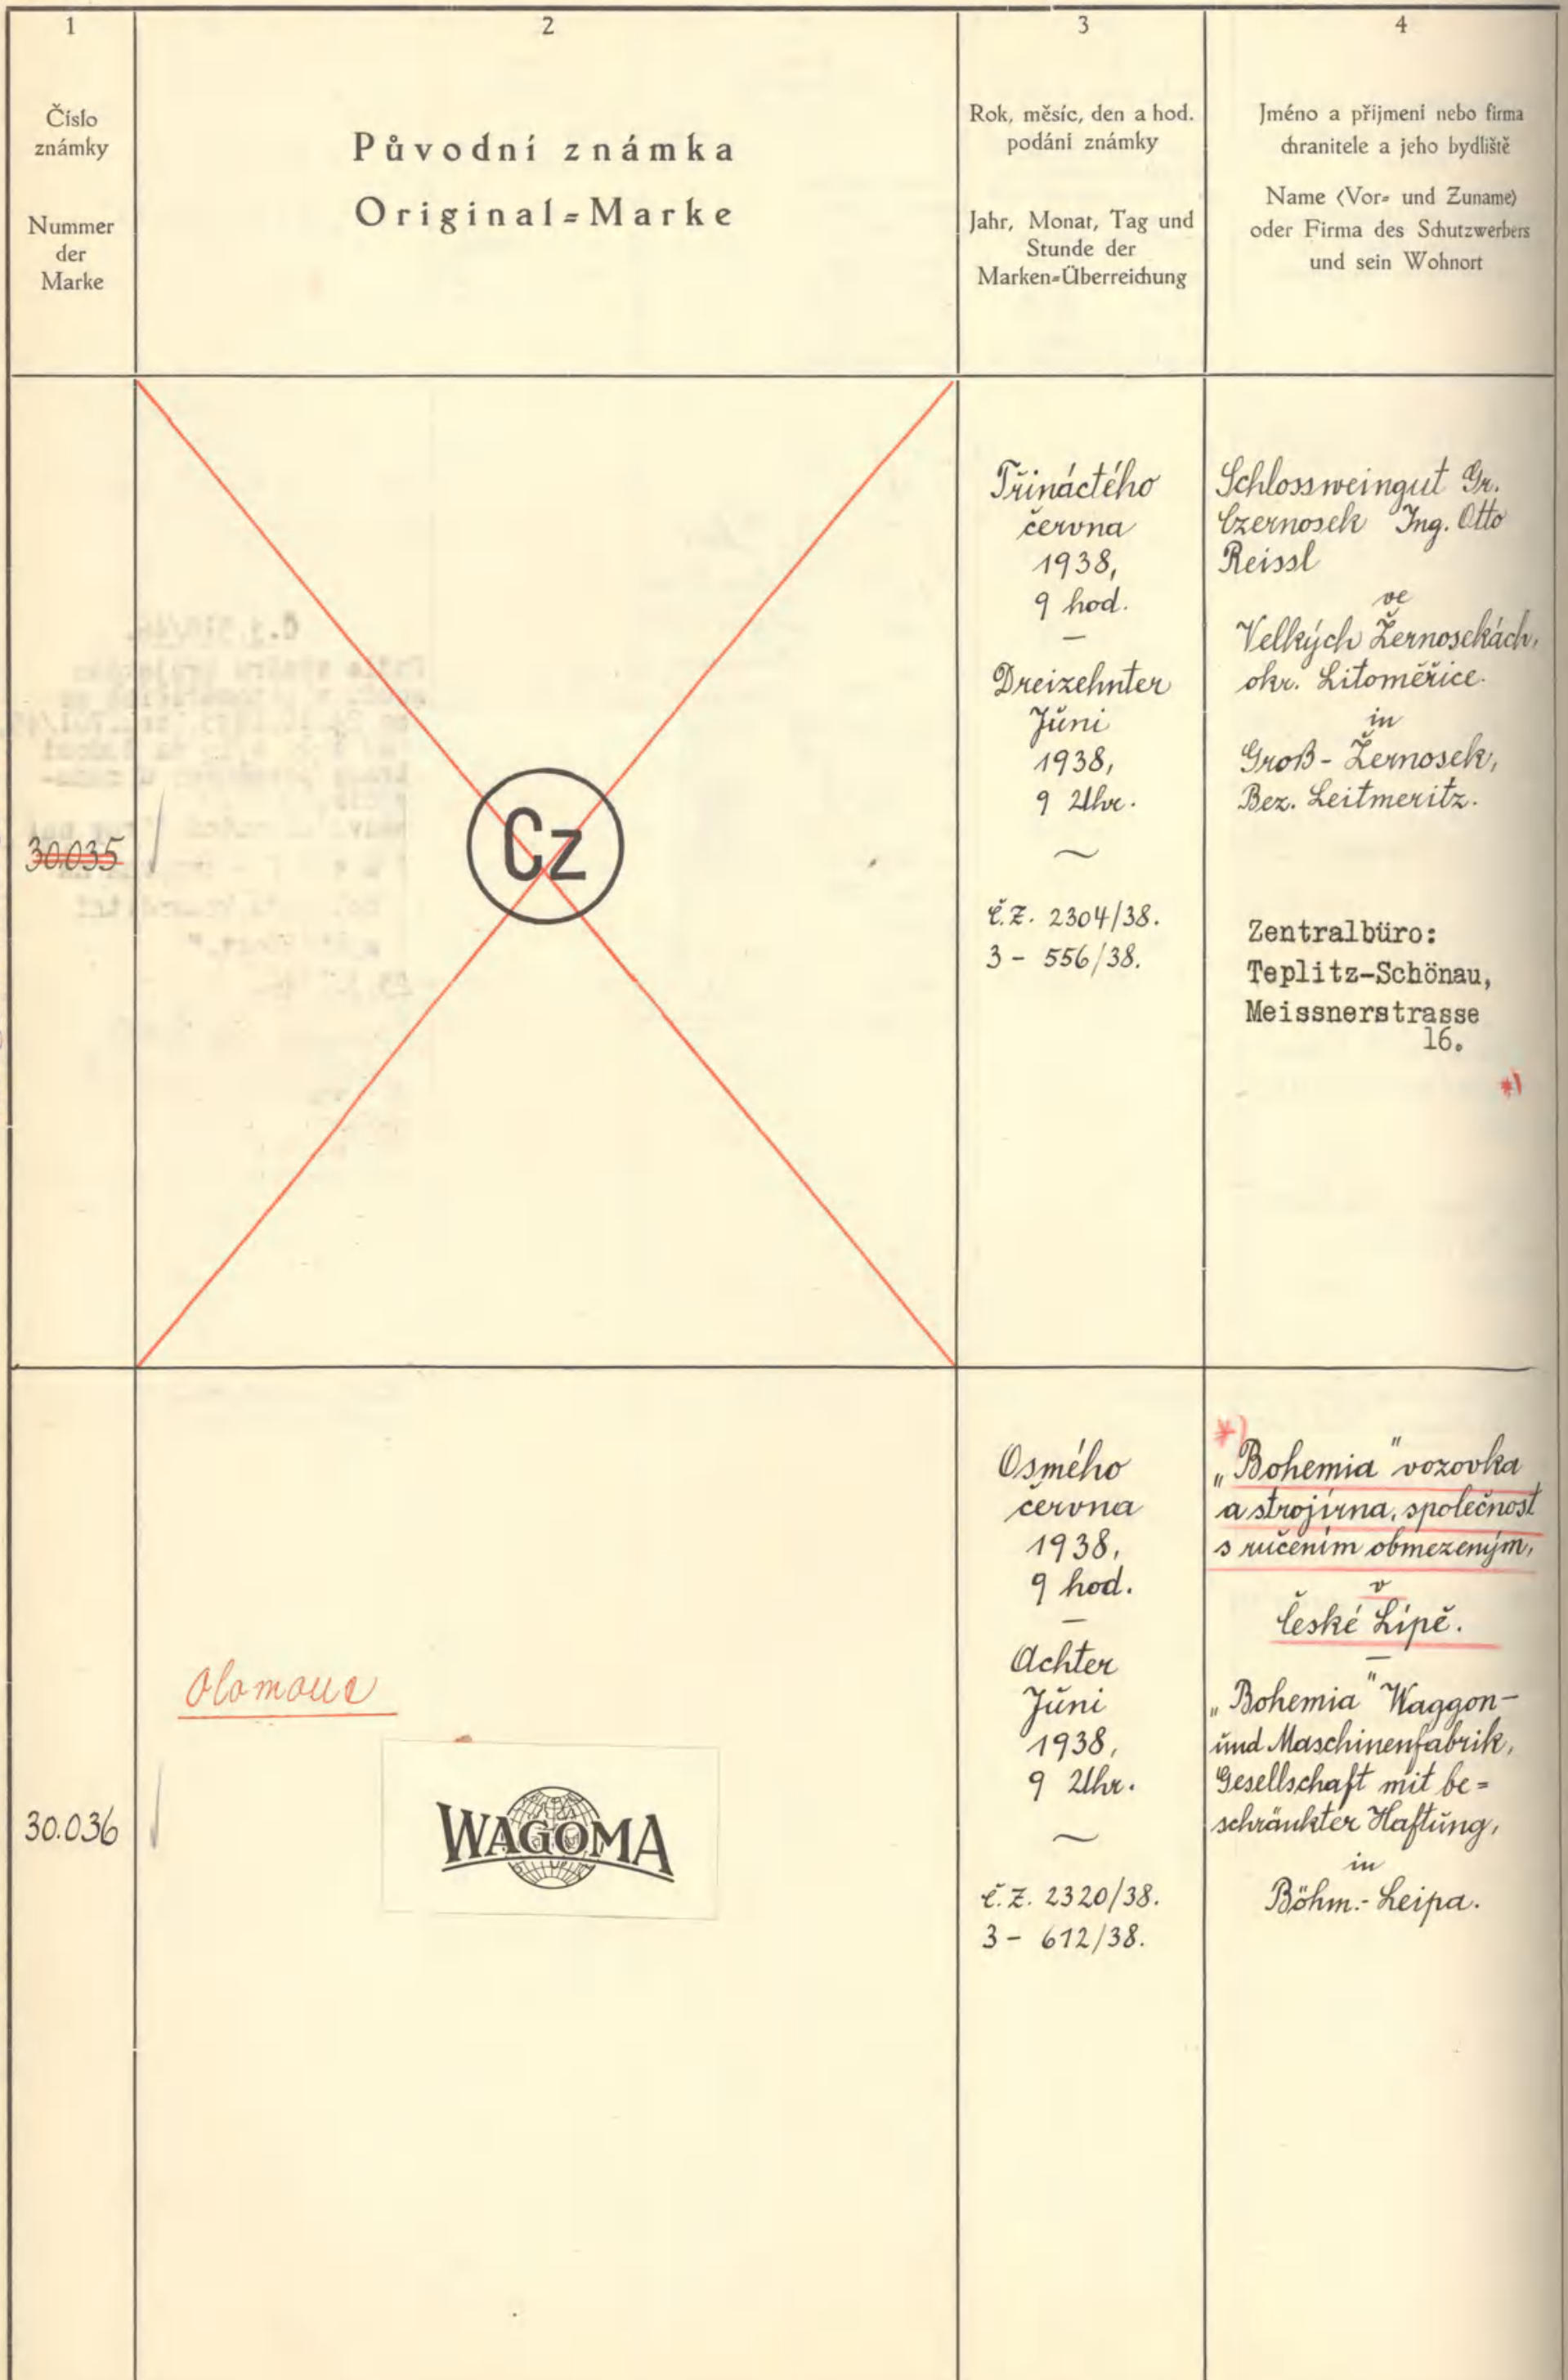 1
Číslo
známky
Nummer
der
Marke
2
Původní známka
Original=Marke
3
Rok, měsíc, den a hod.
podání známky
Jahr, Monat, Tag und
Stunde der
Marken=Überreichung
4
Jméno a příjmení nebo firma
chranitele a jeho bydliště
Name (Vor= und Zuname)
oder Firma des Schutzwerbers
und sein Wohnort
30.035
Cz
Třináctého
června
1938,
9 hod.
—
Dreizehnter
Juni
1938,
9 Uhr.
~
č.Z. 2304/38.
3 - 556/38.
Schlossweingut Gr.
Czernosek Ing. Otto
Reissl
ve
Velkých Žernosekách,
okr. Litoměřice.
in
Groß-Žernosek,
Bez. Leitmeritz.
Zentralbüro:
Teplitz-Schönau,
Meissnerstrasse
16.
*)
30.036
Olomouc
WAGOMA
Osmého
června
1938,
9 hod.
—
Achter
Juni
1938,
9 Uhr.
~
č.Z. 2320/38.
3 - 612/38.
*)
„Bohemia" vozovka
a strojírna, společnost
s ručením obmezeným,
v
České Lípě.
—
„Bohemia" Waggon-
und Maschinenfabrik,
Gesellschaft mit be=
schränkter Haftung,
in
Böhm.-Leipa.